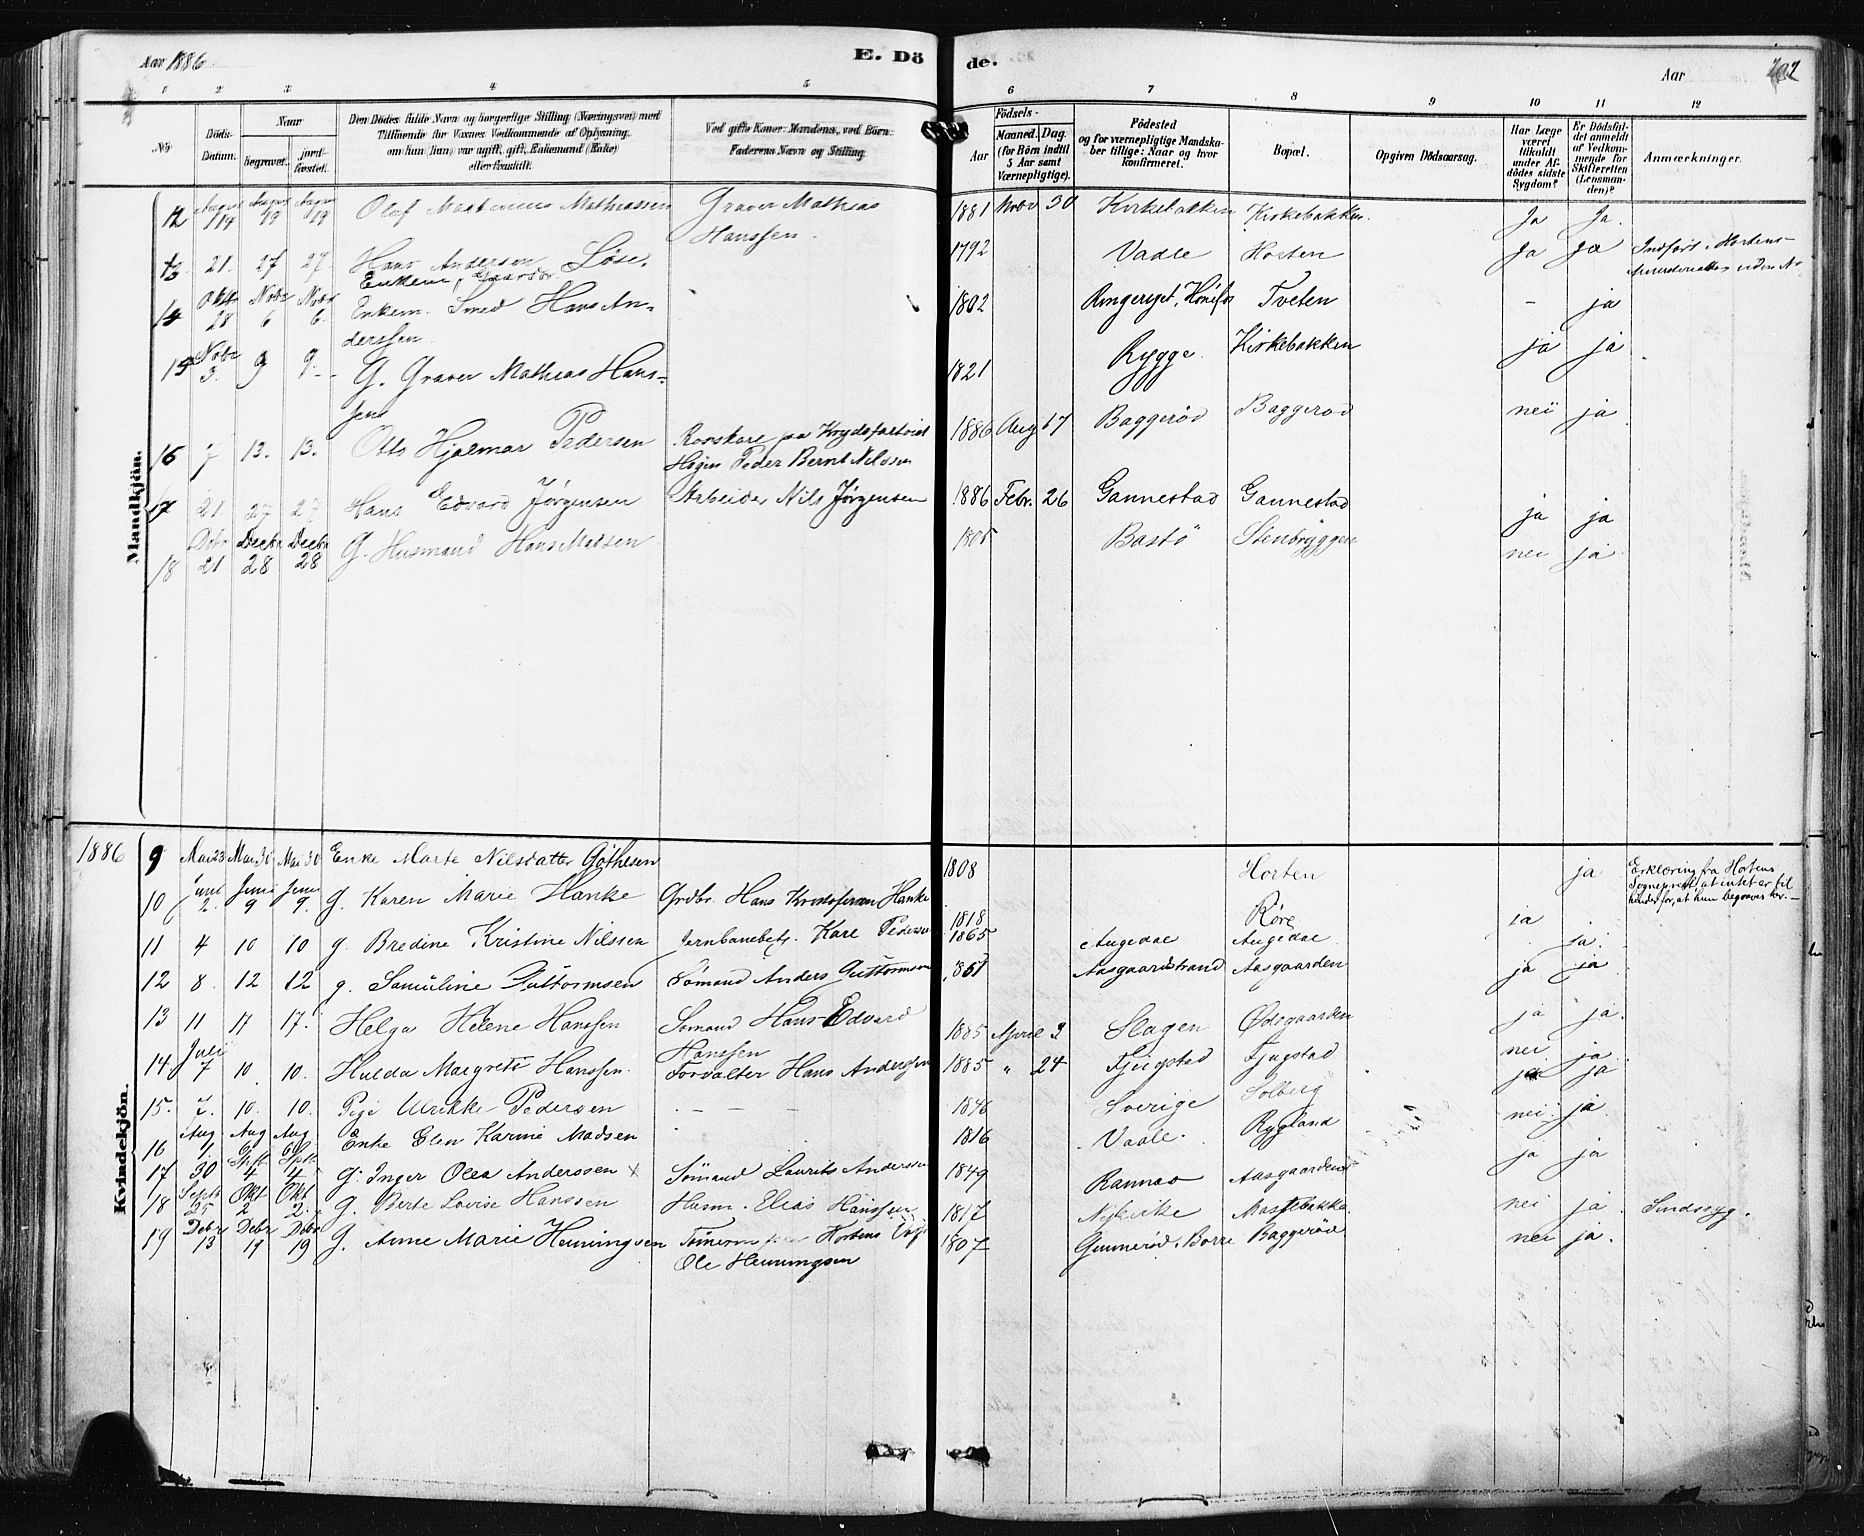 Aar 1886
E. Dö
de.
Aar
202
1 2 3 4 5 6 7 8 9 10 11 12
No
Döds-Datum.
Naar
begravet.
jord-fæstet.
Den Dödes fulde Navn og borgerlige Stilling (Næringsvei) med
Tilföiende for Voxnes Vedkommende af Oplysning,
om han (hun) var ugift, gift, Enkemand (Enke)
eller fraskilt.
Ved gifte Koner: Mandens, ved Börn:
Faderens Navn og Stilling.
Födsels-
Aar
Maaned. Dag.
(for Börn indtil
5 Aar samt
Værnepligtige).
Födested
og for værnepligtige Mandska-
ber tillige: Naar og hvor
konfirmeret.
Bopæl.
Opgiven Dödsaarsag.
Har Læge
været
tilkaldt
under Af-
dödes sidste
Sygdom?
Er Dödsfal-
det anmeldt
af Vedkom-
mende for
Skifteretten
(Lensman-
den)?
Anmærkninger.
Mandkjön.
12 August 14 August 19 August 19 Olaf Martinius Mathiassen Graver Mathias 1881 Novbr 30 Kirkebakken Kirkebakken. Ja Ja.
Hanssen.
13 21. 27 27 Hans Anderson Löse. 1792 Vaale Horten Ja Ja Indfört i Hortens
Enkem., Gaardbr.
14 Oktr 28 Novbr 6 Novbr 6. Enkem. Smed Hans An- 1802 Ringeriget, Hönefos Tveten - ja
derssen.
15 Novbr 3. 9 9. G. Graver Mathias Hans- 1821 Rygge. Kirkebakken ja ja
sen
16 7 13. 13. Otto Hjalmar Pedersen Rorskare paa Krydsfartöiet 1886 Aug 17 Baggeröd Baggeröd nei ja
Høgen Peder Bernt Nilssen
17 21 27 27 Hans Edvard Jörgensen Arbeider Nils Jörgensen 1886 Febr. 26 Gannestad Gannestad ja ja
18 Dcbr 21 Decbr 28 Decbr 28 G. Husmand Hans Madsen 1805 Bastö Stenbryggen nei ja
Kvindekjön.
1886 9 Mai 23 Mai 30 Mai 30 Enke Marte Nilsdatter Göthesen 1808 Horten ja Erklæring fra Hortens
Sogneprest, at intet er til
hinder for, at hun begraves her.
10 Juni 2. Juni 9 Juni 9. g. Karen Marie Hanke Grdbr. Hans Kristofersen Hanke 1818 Röre ja
11 4 10 10 g. Bredine Kristine Nilssen Jernbanebetj. Karl Pedersen 1865 Augedal Augedal ja.
12 8. 12 12 g. Samuline Guttormsen Sömand Anders Guttormsen 1861 Aasgaardstrand Aasgaarden ja ja
13 11 17 17. Helga Helene Hanssen Sömand Hans Edvard 1885 April 3 Slagen Ödegaarden ja ja.
Hanssen
14 Juli 7 10. 10. Hulda Margrete Hanssen. Forvalter Hans Anderssen 1885 " 24 Fjugstad Fjugstad nei ja
15. 7. 10. 10. Pige Ulrikke Pedersen - - - 1846 Sverige Solberg ja ja
16 Aug. 1 Aug 6 Aug. 6 Enke Elen Karine Madsen 1816 Vaale. Rygland nei. ja
17 30 Sept. 4 Sept. 4 G. Inger Olea Anderssen x Sömand Laurits Anderssen 1849 Rannes Aasgaarden ja ja
18 Septr 25 Okt 2 Okt 2. g. Berte Lovise Hanssen Husm. Elias Hanssen 1817 Nykirke Massebakke nei ja Sindssyg.
19 Debr 13 Debr 19 Debr 19 G. Anne Marie Henningsen Tömerm. Hortens 1807 Gunneröd, Borre Baggeröd nei ja.
Ole Henningsen